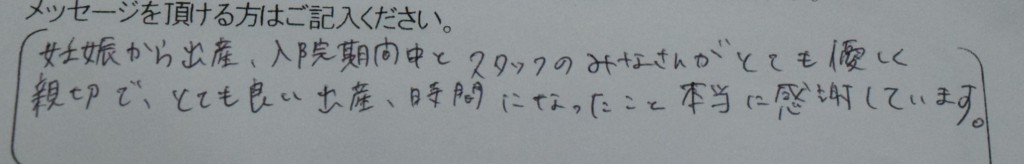 メッセージを頂ける方はご記入ください。
妊娠から出産、入院期間中とスタッフのみなさんがとても優しく
親切で、とても良い出産、時間になったこと本当に感謝しています。